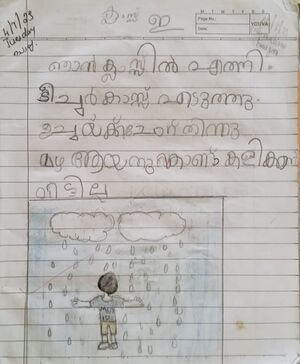 ക്ലാസ്സ് ഇ
4/7/23
Tuesday
Page No.:
Date:
YOUVA
ഞാൻ ക്ലാസ്സിൽ എത്തി.
ടീച്ചർ ക്ലാസ് എടുത്തു.
ഉച്ചയ്ക്ക് ചോറ് തിന്നു
മഴ ആയതുകൊണ്ട് കളിക്കാൻ
വിട്ടില്ല